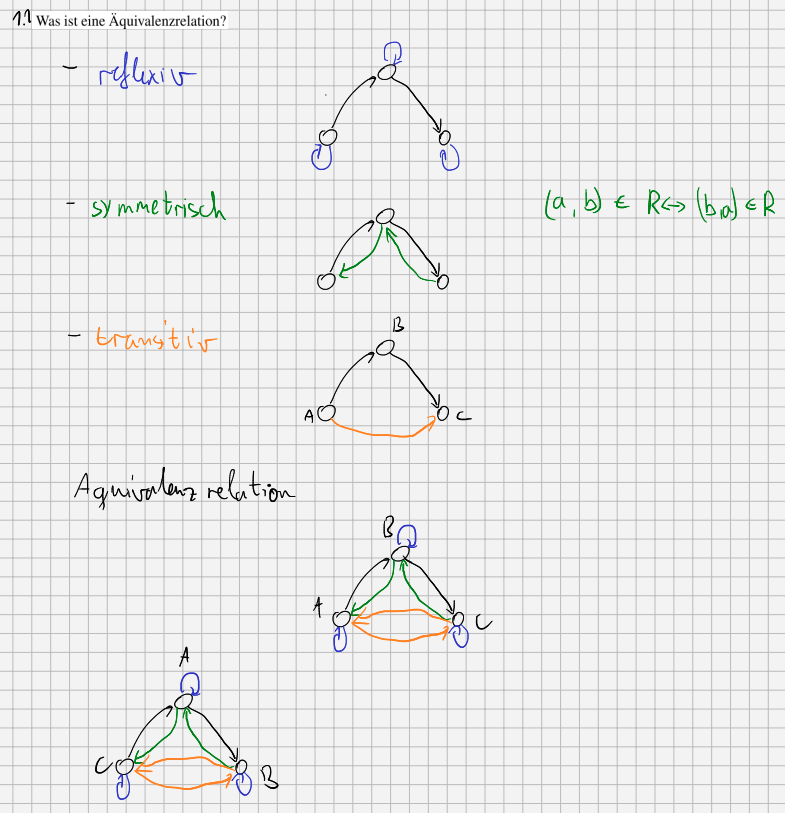 1.1 Was ist eine Äquivalenzrelation?
- reflexiv
- symmetrisch (a, b) ∈ R ↔ (b,a) ∈ R
- transitiv
B
A C
Aquivalenzrelation
B
A C
A
C B